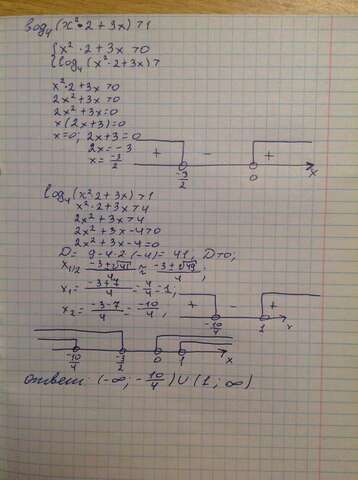 log₄(x²·2+3x)>1
{x²·2+3x>0
{log₄(x²·2+3x)>
x²·2+3x>0
2x²+3x>0
2x²+3x=0
x(2x+3)=0
x=0; 2x+3=0
2x=-3
x=-3/2
+ - +
-3/2 0 x
log₄(x²·2+3x)>1
x²·2+3x>4
2x²+3x>4
2x²+3x-4>0
2x²+3x-4=0
D=9-4·2·(-4)=41, D>0,
x₁/₂ = (-3±√41)/4 ≈ (-3±√49)/4;
x₁=(-3+7)/4=4/4=1;
x₂=(-3-7)/4=-10/4;
+ - +
-10/4 1 x
-10/4 -3/2 0 1 x
ответ: (-∞; -10/4)∪(1; ∞)